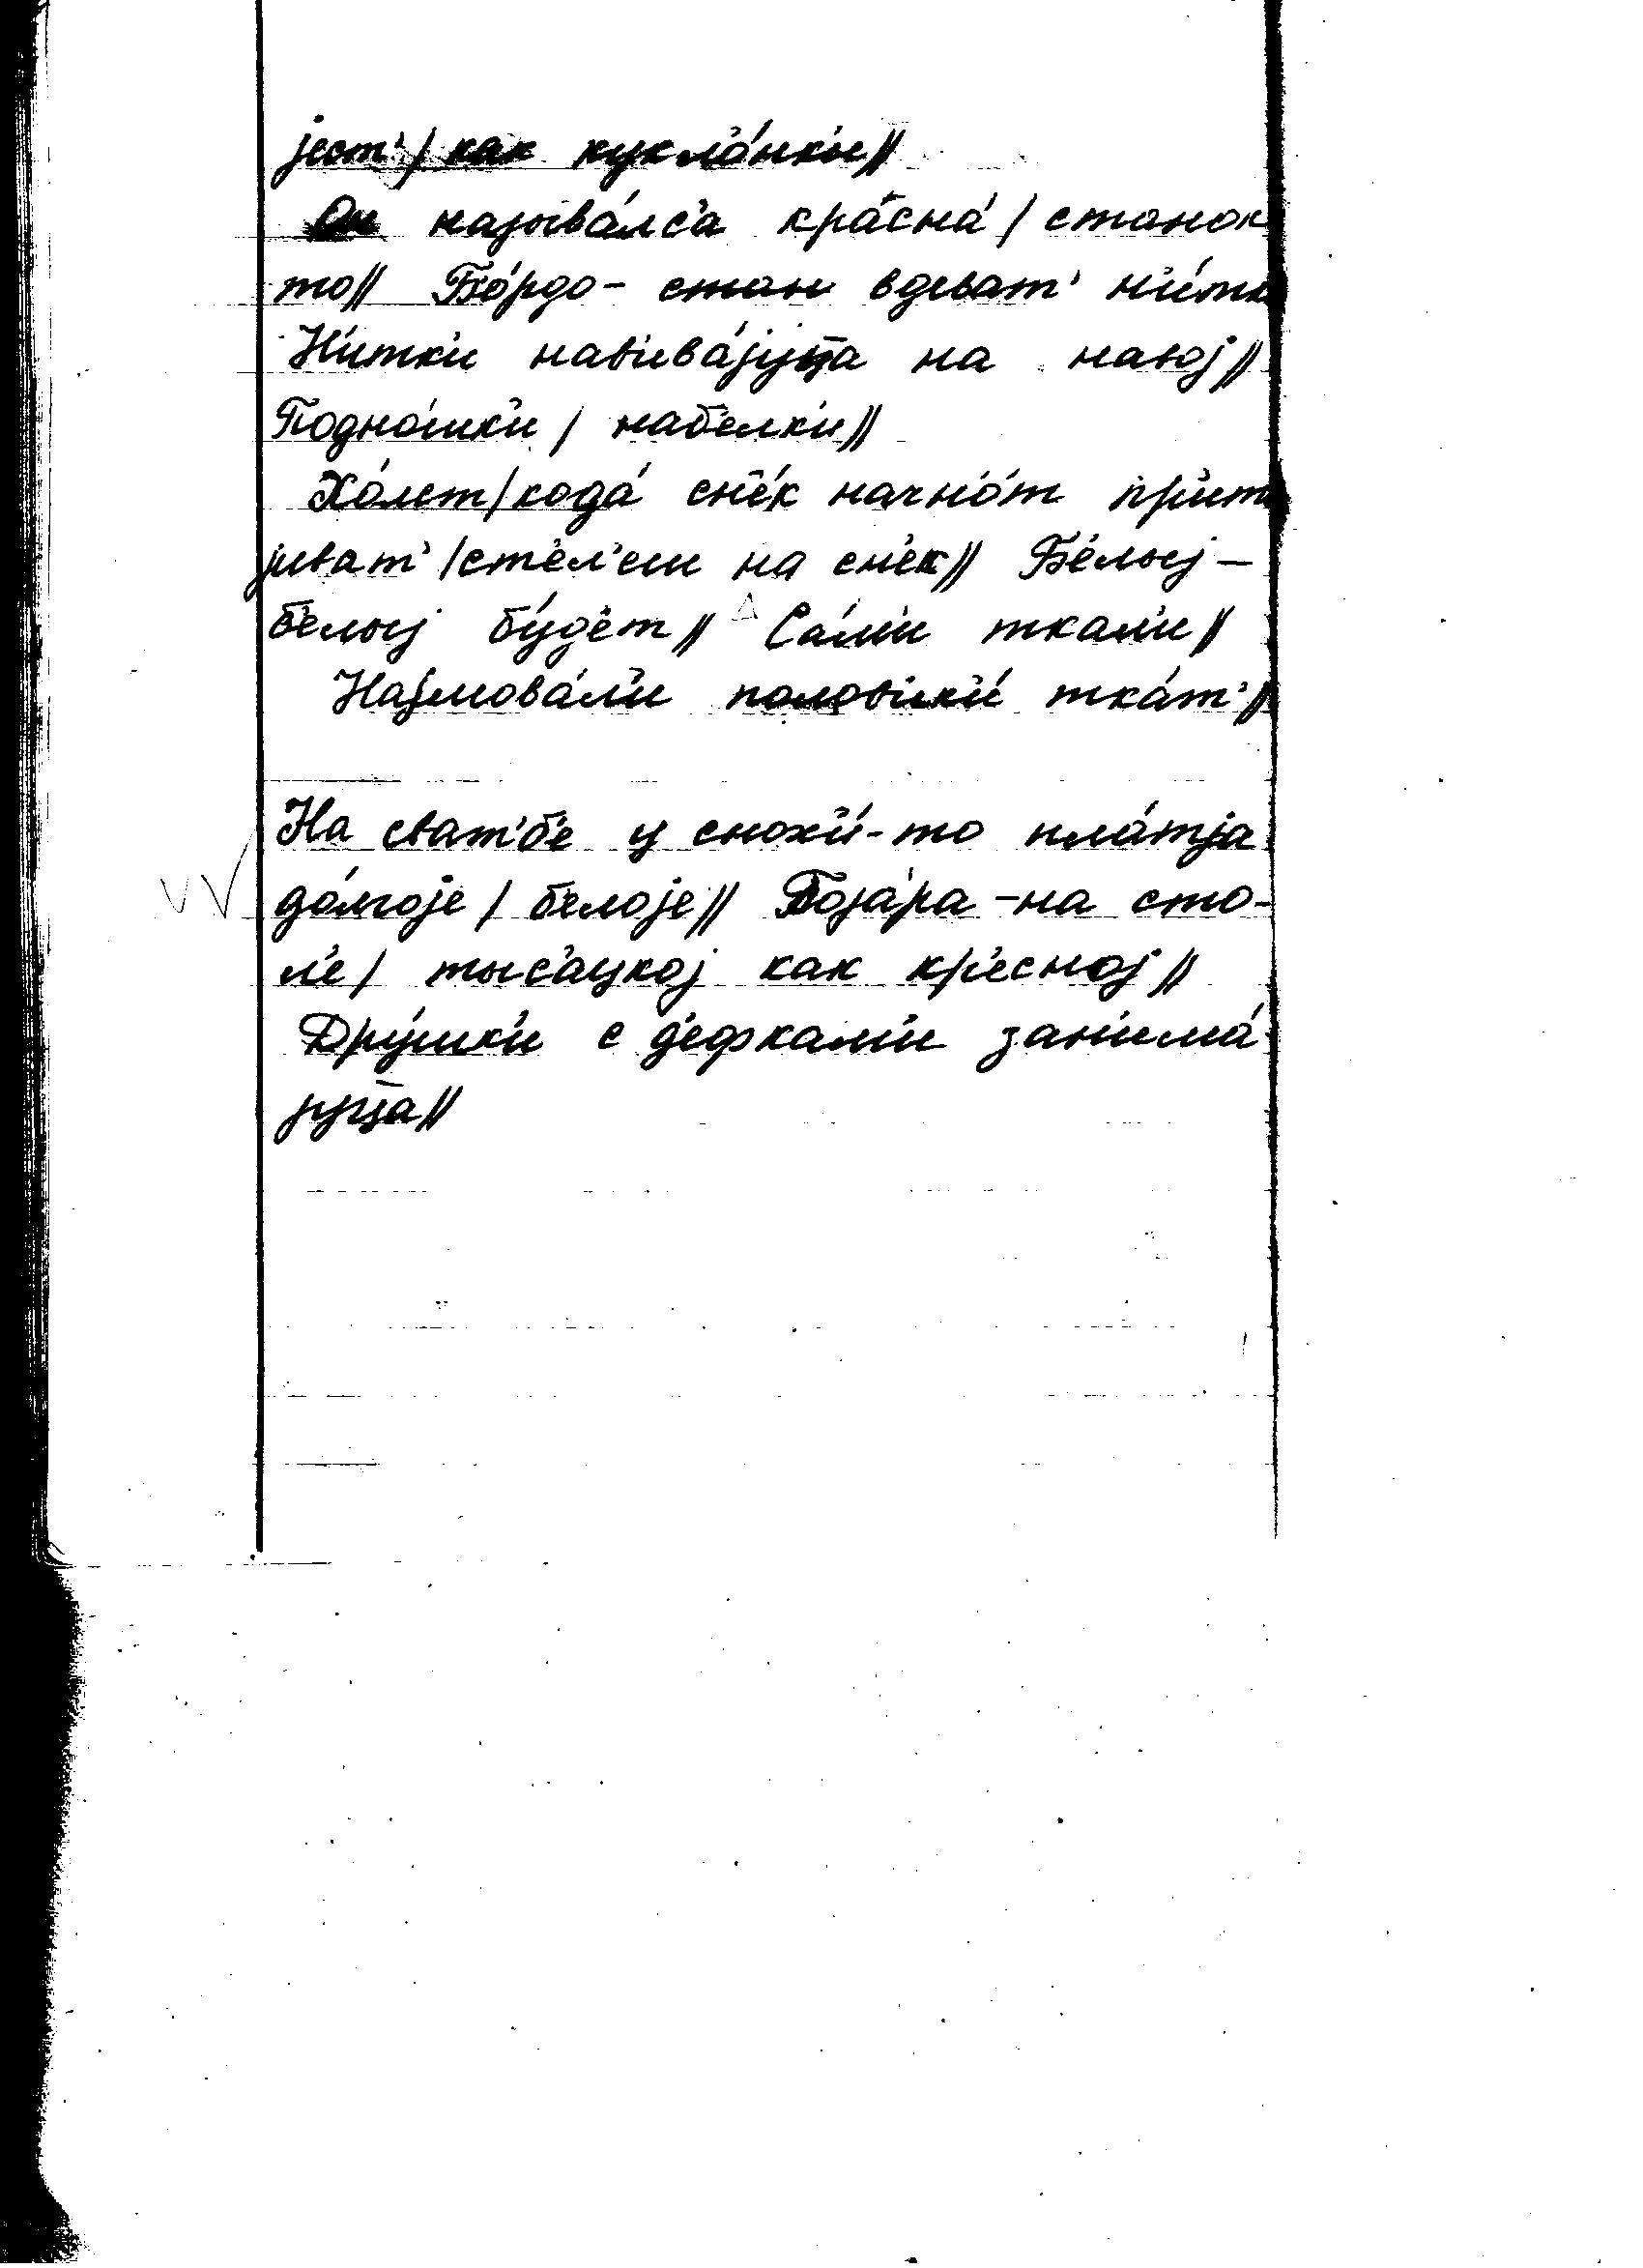 јест'/ как кукла́нк'и//
Он называ́лс'а кра́сна́/ станок
то// Бо́рдо- стан вдеват' н'и́тк
Н'итк'и нав'ива́јуц̅а на навој//
Подно́шк'и/ наб'елк'и//
Хо́лст/кода́ сн'е́к начн'о́т пр'ит
јиват'/ст'ел'еш на сн'ек// Б'е́лыј—
б'елыј бу́д'ет// Са́м'и ткал'и//
Најмова́л'и полов'ик'и́ тка́т'//
На сват'б'е у снох'и́-то пла́тја
до́лгоје/ б'елоје// Боја́ра -на сто-
л'е/ тыс'ацкој как кр'есној//
Дру́шк'и с д'ефкам'и зан'има́
јуц̅а//